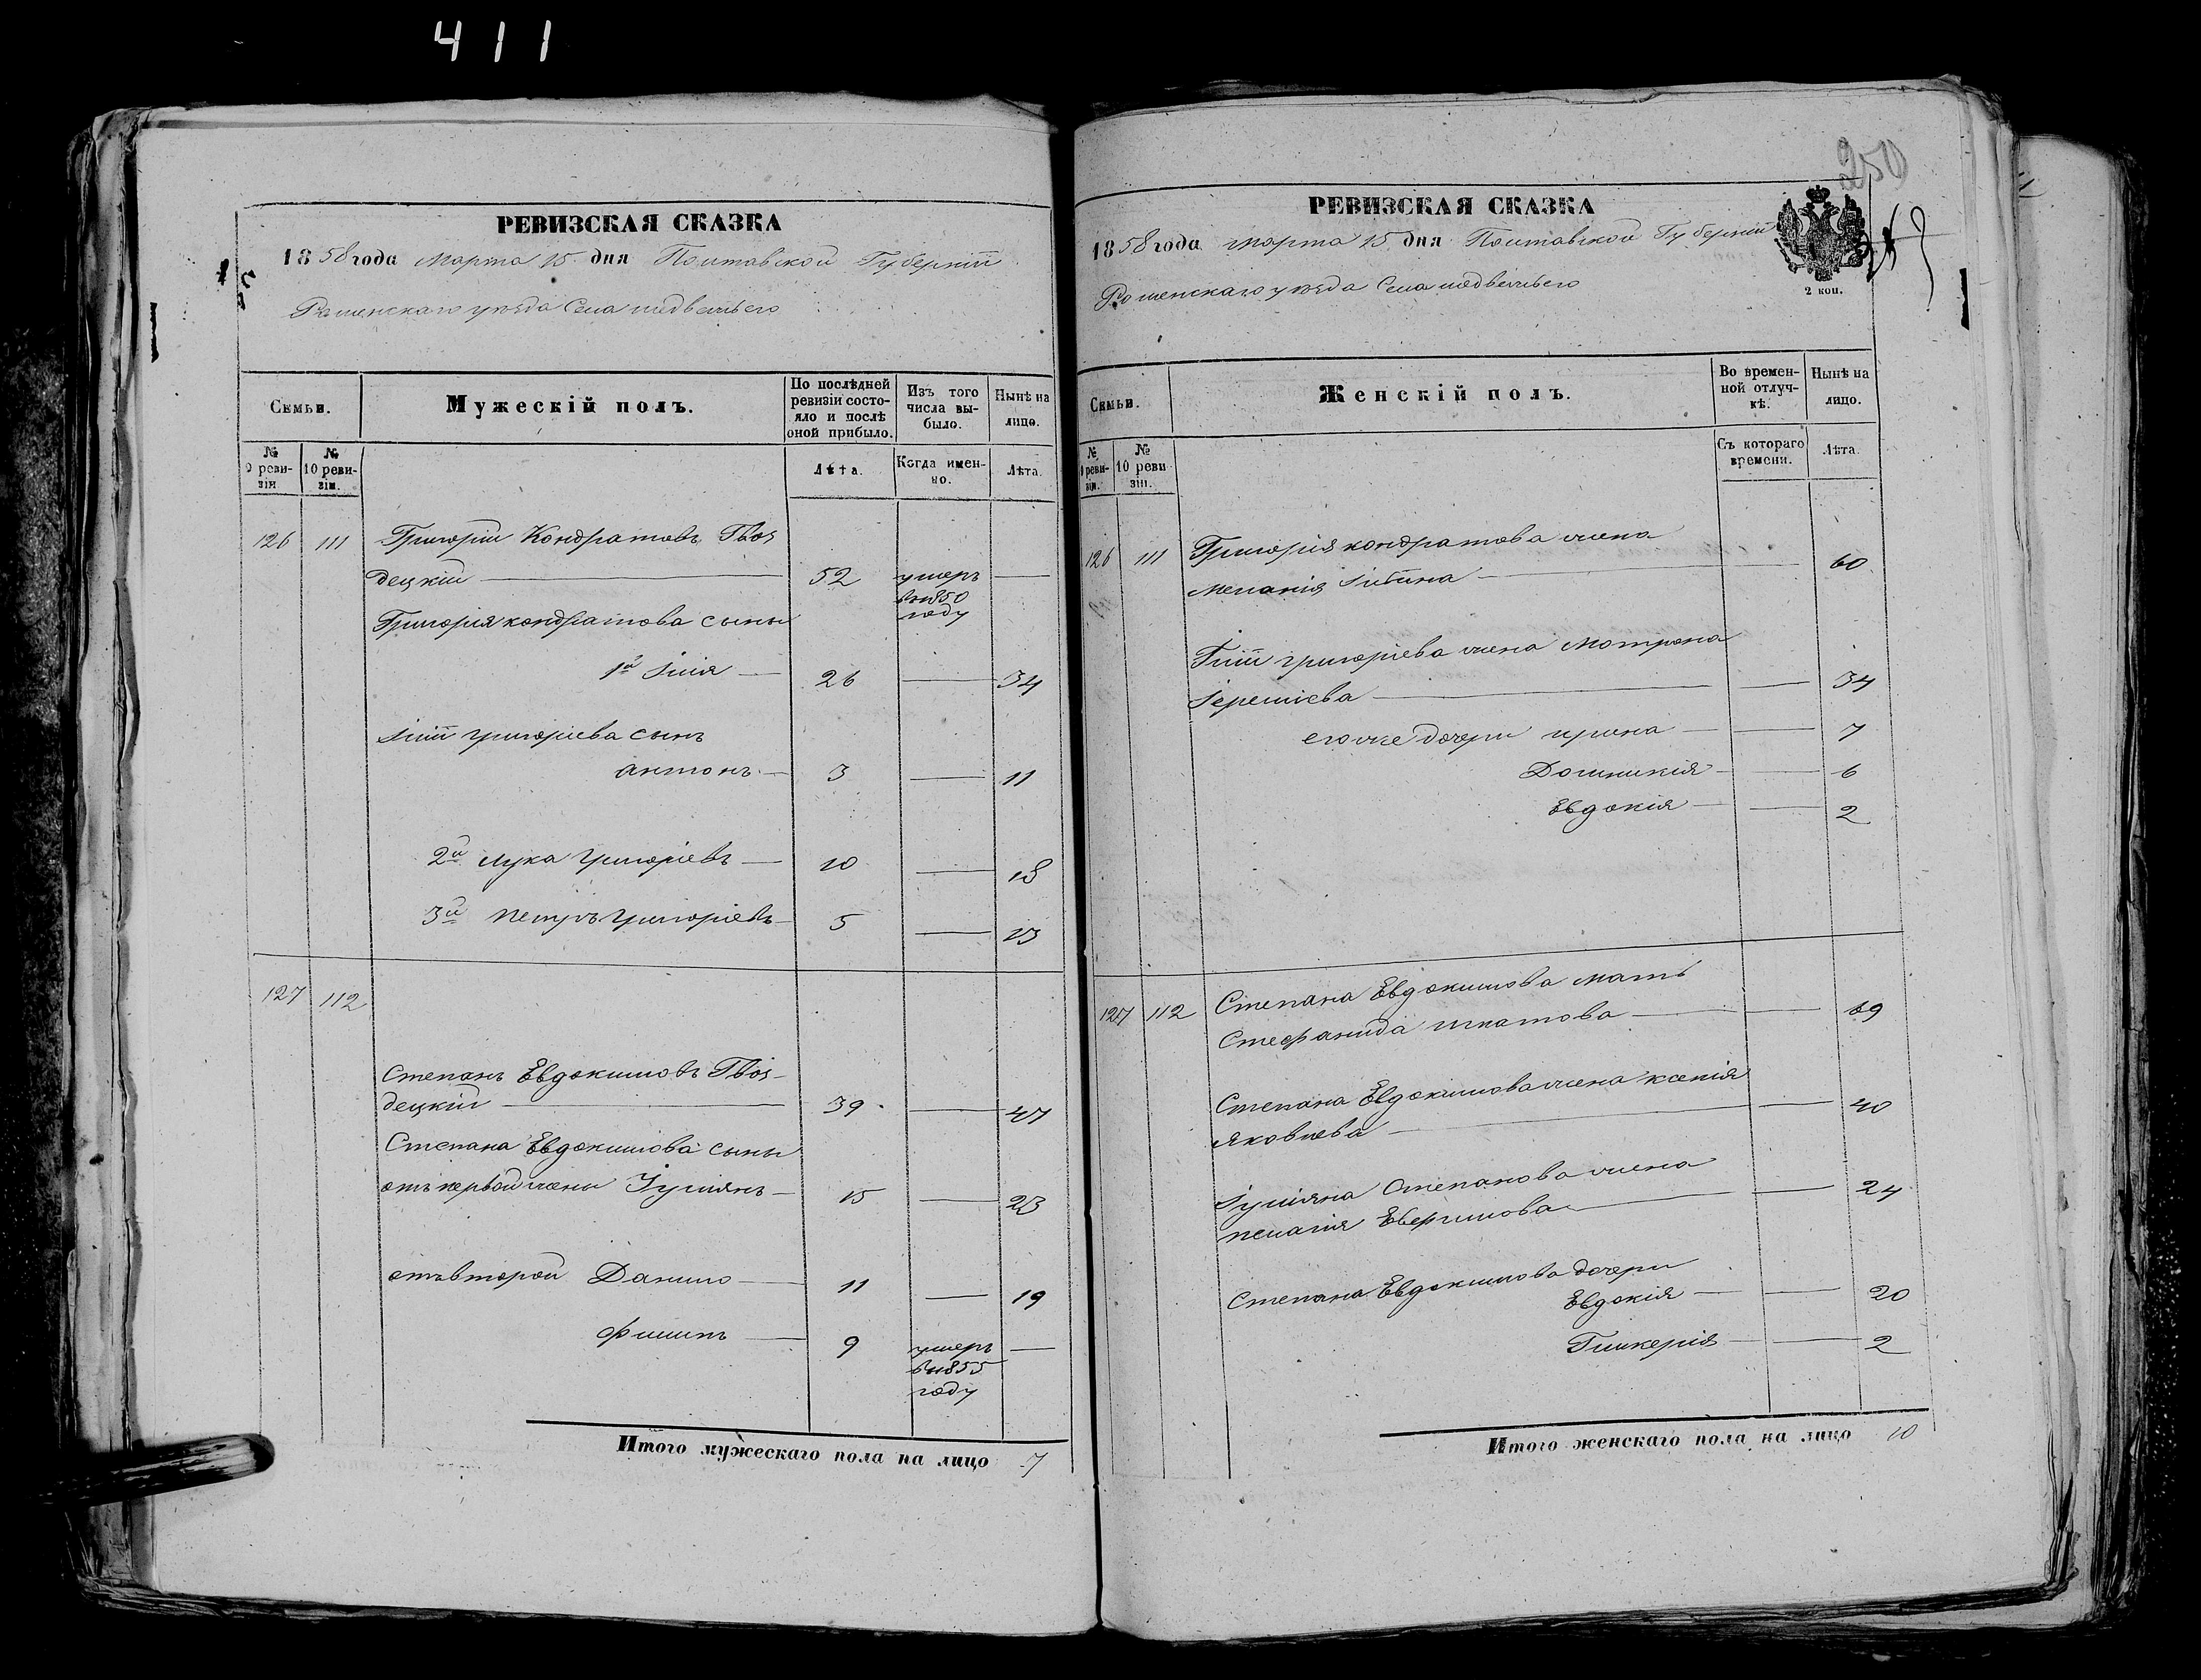 411
РЕВИЗСКАЯ СКАЗКА
1858 года Марта 15 дня Полтавской Губерніи
Роменскаго уезда Села медвежьего
Семьи.
Мужескій полъ.
По послѣдней ревизіи состояло и послѣ оной прибыло.
Изъ того числа выбыло.
Нынѣ на лицо.
№ 9 ревизіи
№ 10 ревизіи.
Лѣта.
Когда именно.
Лѣта.
126 111 Григорій Кондратовъ Гвоз
децкій 52 умеръ
в 1850
году
Григорія кондратова сыны
1й Илія 26 34
Иліи григоріева сынъ
антонъ 3 11
2й лука григоріевъ 10 18
3й петръ григоріевъ 5 13
127 112
Степанъ Евдокимовъ Гвоз-
децкій 39 47
Степана Евдокимова сыны
отъ первой жены Іуліянъ 15 23
отъ второй Данило 11 19
Филипъ 9 умеръ
в 1855
году
Итого мужескаго пола на лицо 7
250
РЕВИЗСКАЯ СКАЗКА
1858 года марта 15 дня Полтавской Губерніи
Роменскаго уезда Села медвежьего
2 коп.
Семьи.
Женскій полъ.
Во временной отлучкѣ.
Нынѣ на лицо.
№ 9 ревизіи.
№ 10 ревизіи.
Съ котораго времени.
Лѣта.
126 111 Григорія кондратова жена
меланія 60
Иліи григоріева жена Мотрона
Іереміева 34
его же дочери ирина 7
Домникія 6
Евдокія 2
127 112 Степана Евдокимова мать
Стефанида игнатова 69
Степана Евдокимова жена ксенія
Яковлева 40
Іуліяна Степанова жена
пелагія 24
Степана Евдокимова дочери
Евдокія 20
Гликерія 2
Итого женскаго пола на лицо 10